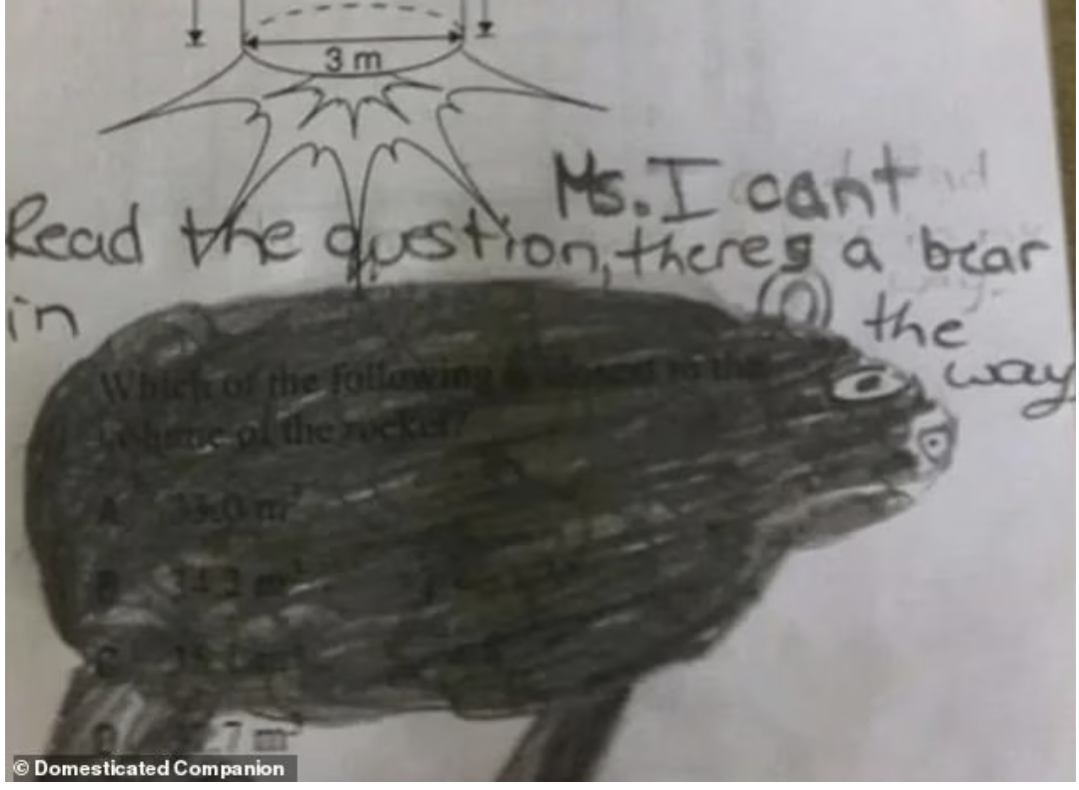 3 m
Ms. I cant
Read the question, theres a bear
in the
way
Which of the following is closest to the
volume of the rocket?
A
B
C
D 7 m³
© Domesticated Companion